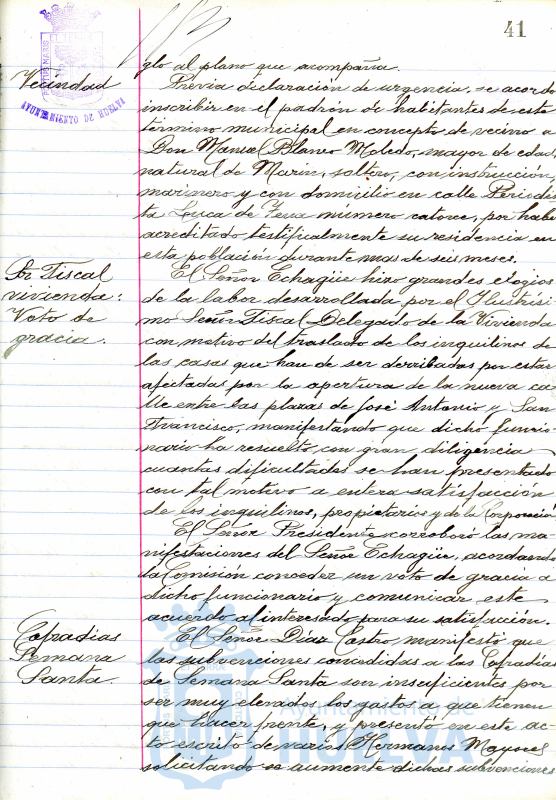 41
AYUNTAMIENTO DE HUELVA
glo al plano que acompaña.
Vecindad
Previa declaración de urgencia, se acordó
inscribir en el padrón de habitantes de este
término municipal en concepto de vecino a
Don Manuel Blanco Moledo, mayor de edad,
natural de Marin, soltero, con instrucción,
marinero y con domicilio en calle Periodis
ta Luca de Tena número catorce, por haber
acreditado testificalmente su residencia en
esta población durante mas de seis meses.
Sr Fiscal
vivienda:
Voto de
gracia.
El Señor Echagüe hizo grandes elogios
de la labor desarrollada por el Ilustrisi
mo Señor Fiscal Delegado de la Vivienda
con motivo del traslado de los inquilinos de
las casas que han de ser derribadas por estar
afectadas por la apertura de la nueva ca
lle entre las plazas de José Antonio y San
Francisco, manifestando que dicho funcio
nario ha resuelto con gran diligencia
cuantas dificultades se han presentado
con tal motivo a entera satisfacción
de los inquilinos, propietarios y de la Corporación
El Señor Presidente corroboró las ma
nifestaciones del Señor Echagüe, acordando
la Comisión conceder un voto de gracia a
dicho funcionario y comunicar este
acuerdo al interesado para su satisfacción.
Cofradias
Semana
Santa.
El Señor Díaz Castro manifestó que
las subvenciones concedidas a las Cofradías
de Semana Santa son insuficientes por
ser muy elevados los gastos a que tienen
que hacer frente, y presentó en este ac
to escrito de varios Hermanos Mayores
solicitando se aumente dichas subvenciones
Ayuntamiento de
HUELVA